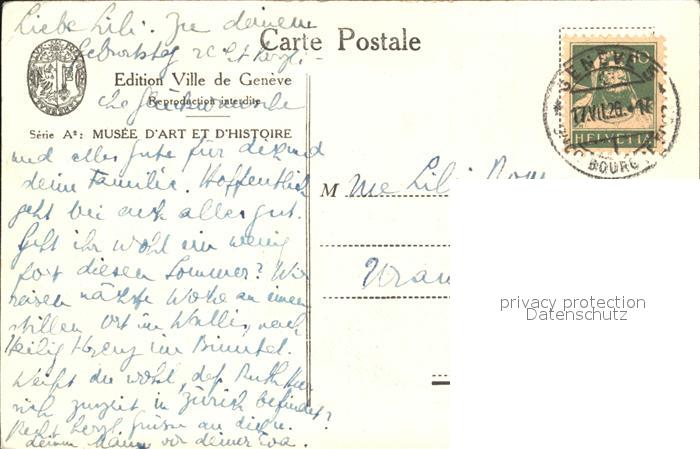 Liebe Lili. Zu deinem
Geburtstag herzli-
che Glückwünsche
und alles Gute für dich und
deine Familie. Hoffentlich
geht bei euch alles gut.
Geht ihr wohl ein wenig
fort diesen Sommer? Wir
reisen nächste Woche an einen
stillen Ort im Wallis, nach
Heilig Kreuz im Binntal.
Weißt du wohl, daß Ruth
sich zurzeit in Zürich befindet?
Recht herzl. Grüsse an dich u.
deinen Mann von deiner Eva.
Carte Postale
Edition Ville de Genève
Reproduction interdite
Série A*: MUSÉE D'ART ET D'HISTOIRE
GENÈVE
17.VII.26.
BOURG
HELVETIA
M me Lili
privacy protection
Datenschutz